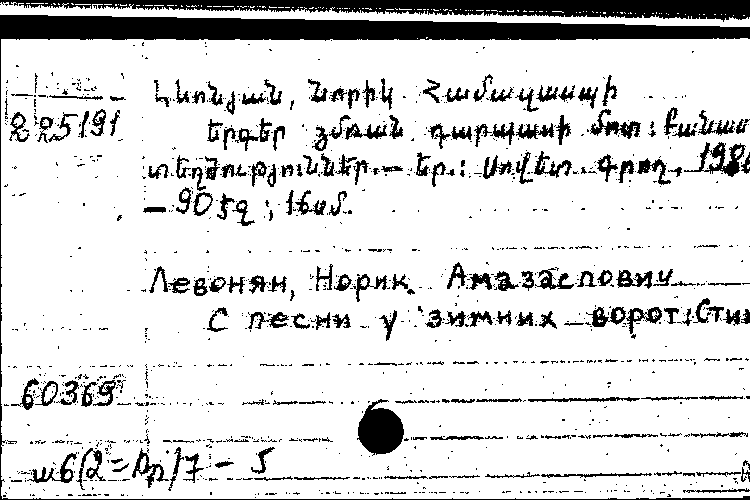 Լևոնյան, Նորիկ Համազասպի
225191
Երգեր ձմռան դարպասի մոտ: Բանաս
տեղծություններ.— Եր.: Սովետ. գրող, 198
— 90 էջ ; 16սմ.
Левонян, Норик Амазаспович
С песни у зимних ворот: Сти
60369
ш6(2=Ар)7 – 5